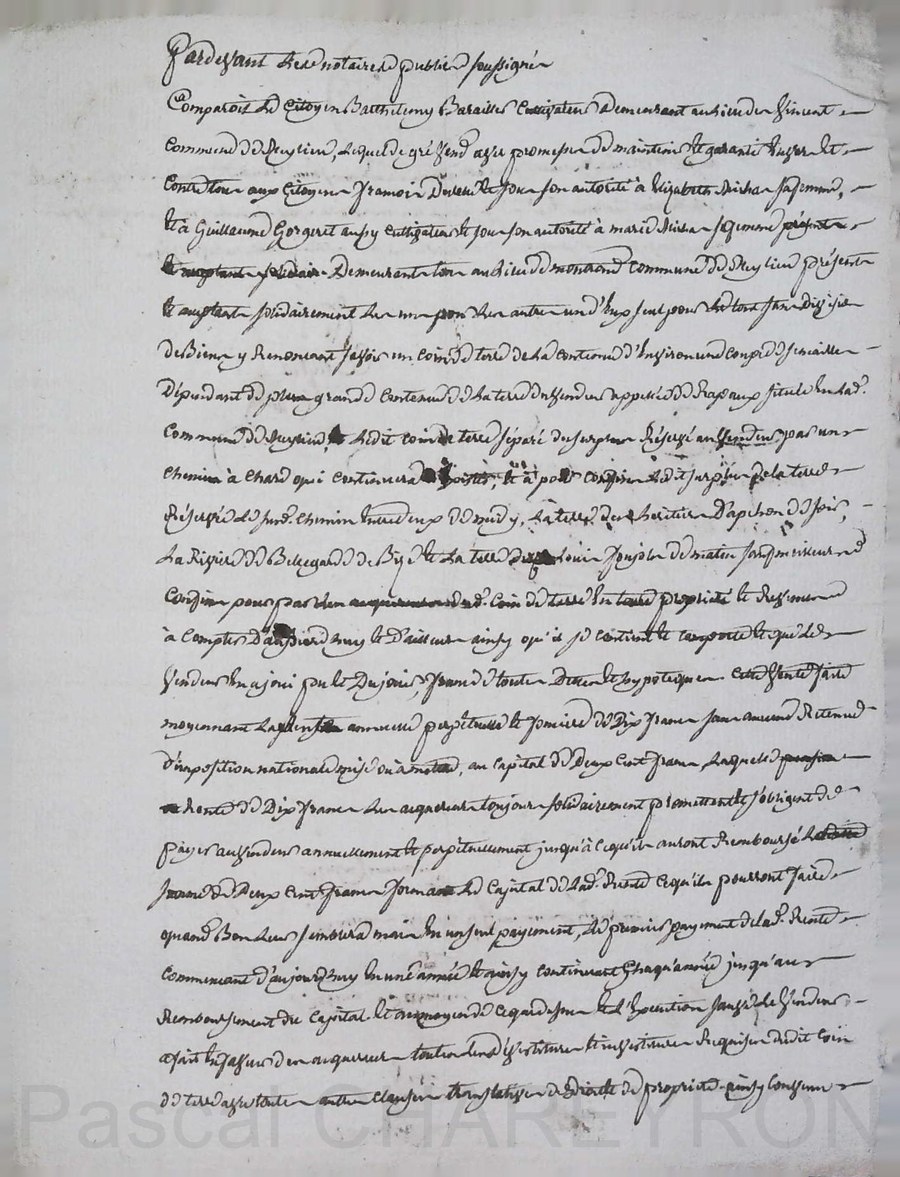 Pardevant les notaires publics soussignés
Comparoit le Citoyen Barthelemy Barailler Cultivateur demeurant au lieu de Vincent
Commune de Meylieu, lequel de gré vend avec promesse de maintenir et garantir envers et
Contre tous aux Citoyens françois et sous son autorité à Elizabeth sa femme,
et à Guillaume Gorgeret aussy Cultivateur et sous son autorité à marie sa femme présents
et acceptants solidaires demeurants tous au lieu de montrond Commune de Meylieu présents
et acceptants solidairement les uns pour les autres un d'eux seul pour le tout sans division
de Biens y Renonceant Savoir un Coin de terre de la Contenue d'Environ une Coupe de semaille
Dépendant de plus grande Contenue de la terre du vendeur appellée de située en lad.
Commune de Meylieu, Ledit Coin de terre séparé du surplus Réservé au vendeur par un
Chemin à Chard qui Continuera et à pour Confins Ledit surplus de la terre
Réservée Le susd. Chemin entre deux de midy, La terre des heritiers D'apinon de soir,
La Riviere de Bellegarde de Bize et La terre de Louis de matin sauf meilleurs
Confins pour par les acquereurs dud. Coin de terre en propriété et
à Compter D'aujourdhuy et D'ailleurs ainsy qu'il se Contient et Comporte et que le
Vendeur en a joui pu et Du jouir, franc de toutes Dettes et hypoteques. Cette Vente faite
moyennant La annuelle perpetuelle et fonciere de Dix francs sans aucune Retenue
d'imposition nationale mise ou à mettre, au Capital de Deux Cent francs, Laquelle pension
Rente de Dix francs Les acquereurs toujours solidairement promettent et s'obligent de
payer au vendeur annuellement et perpetuellement jusqu'à Cequ'ils auront Remboursé
somme de Deux Cent francs formant Le Capital de lad. Rente Cequ'ils pourront faire
quand Bon leur semblera mais en un seul payement, Le premier payement de lad. Rente
Commencant d'aujourdhuy en une année et ainsy Continuant Chaqu'année jusqu'au
Remboursement du Capital. et au moyen de Cequedessus et de l'Execution le Vendeur
a fait en faveur des acquereurs toutes devestitures et investitures Requises dudit Coin
de terre avec toutes autres Clauses translatives de Droits de propriété ainsy Convenu
Pascal CHAREYRON